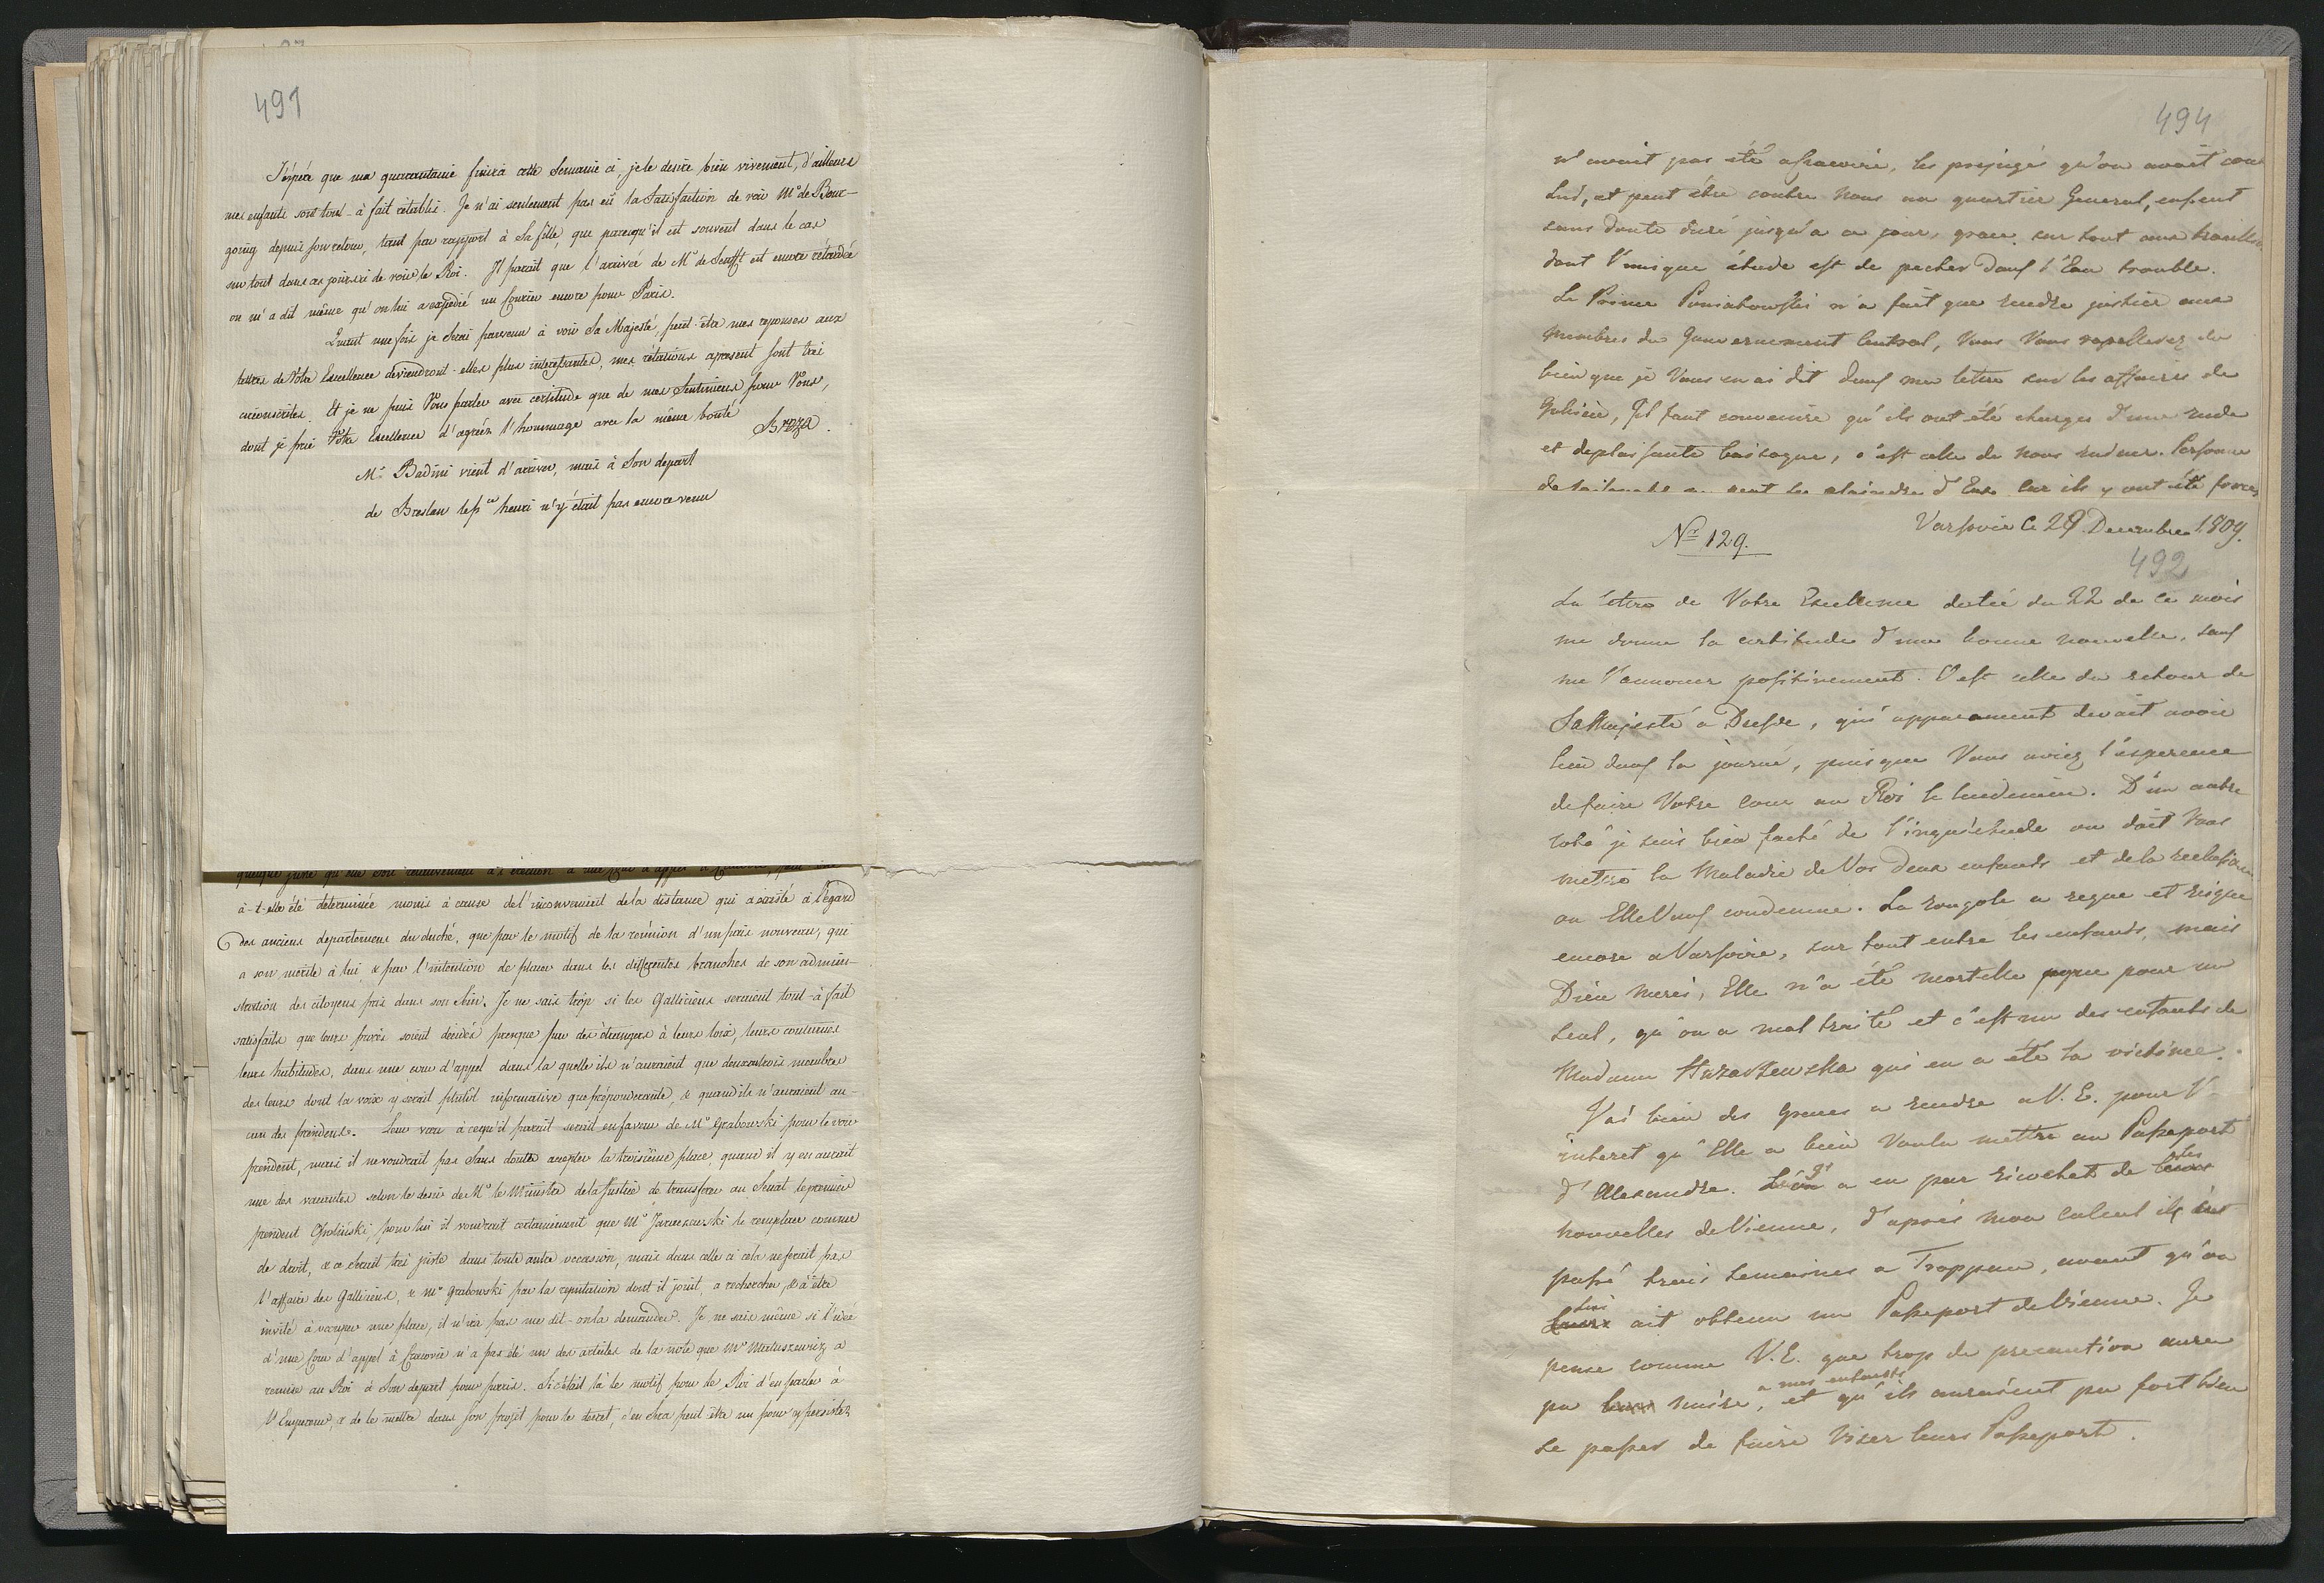 491
J'espére que ma quarantaine finira cette Semaine ci, je le desire bien vivement, d'ailleurs
mes enfants sont tout-à fait rétablis. Je n'ai seulement pas eû la Satisfaction de voir Mr de Bour-
going depuis son retour, tant par rapport à Sa fille, que parcequ'il est souvent dans le cas
sur tout dans ces jours ci de voir le Roi. Il parait que l'arrivée de Mr de Senfft est encore rétardée
on m'a dit même qu'on lui a expédié un Courier encore pour Paris.
Quant une fois je Serai parvenu à voir Sa Majesté, peut-être mes reponses aux
lettres de Votre Excellence deviendront-elles plus interessantes, mes rélations apresent sont très
circonscrites. Et je ne puis Vous parler avec certitude que de mes Sentiments pour Vous,
dont je prie Votre Excellence d'agréer l'hommage avec la même bonté
Breza.
Mr Badini vient d'arriver, mais à Son depart
de Breslau le pce henri n'y était pas encore venu
à-t-elle été determinée moins à cause de l'inconvenient de la distance qui a existé à l'égard
des anciens departemens du duché, que par le motif de la réunion d'un païs nouveau, qui
a son merite à lui & par l'intention de placer dans les differentes branches de son admini-
stration des citoyens pris dans son Sein. Je ne sais trop si les Galliciens seraient tout-à fait
satisfaits que leurs procès soient décidés presque par des étrangers à leurs loix, leurs coutumes
leurs habitudes, dans une cour d'appel dans la quelle ils n'auraient que deux ou trois membres
des leurs dont la voix y serait plutôt informative que préponderante, & quand ils n'auraient au-
cun des presidens. Leur voeu à cequ'il parait serait en faveur de Mr Grabowski pour le voir
president, mais il ne voudrait pas Sans doute accepter la troisième place, quand il y en aurait
une des vacantes selon le desir de Mr le Ministre de la Justice de transferer au Senat le premier
president Gliszinski, pour lui il voudrait certainement que Mr Jaraczewski le remplace comme
de droit, & ce Serait très juste dans toute autre occasion, mais dans celle ci cela ne ferait pas
l'affaire des Galliciens, & Mr Grabowski par la reputation dont il jouit, a rechercher, & à être
invité à occuper une place, il n'ira pas me dit-on la demander. Je ne sais même si l'idée
d'une Cour d'appel à Cracovie n'a pas été un des articles de la note que Mr Matuszewicz a
remise au Roi à Son depart pour paris. Si c'était là le motif pour le Roi d'en parler à
l'Empereur, & de le mettre dans Son projet pour le decret, c'en Sera peut être un pour y persister
494
n'avoit pas été a Cracovie, les prejugés qu'on avoit
et peut être contre Nous au quartier General, eussent
sans doute duré jusqu'a ce jour, grace sur tout aux
dont l'unique étude est de pecher dans l'Eau trouble.
Le Prince Poniatowski n'a fait que rendre justice aux
membres du Gouvernement Central, Vous Vous rapellerez du
bien que je Vous en ai dit dans ma lettre sur les affaires de
Galicie, Il faut convenir qu'ils ont été chargés d'une rude
et deplaisante besogne, c'est celle de nous ruiner. Personne
ne peut se plaindre d'Eux car ils y ont été forcés
Varsovie Ce 29 Decembre 1809.
Nr 129.
492
La lettre de Votre Excellence datée du 22 de ce mois
me donne la certitude d'une bonne nouvelle, sans
me l'annoncer positivement. C'est celle du retour de
Sa Majesté a Dresde, qui apparament devait avoir
lieu dans la journé, puisque Vous aviez l'esperence
de faire Votre cour au Roi le lendemain. D'un autre
coté je suis bien faché de l'inquiétude ou doit Vous
mettre la Maladie de Vos deux enfants et de la reclusion
ou Elle Vous condamne. La rougole a regne et regne
encore a Varsovie, sur tout entre les enfants, mais
Dieu merci, Elle n'a été mortelle que pour un
seul, qu'on a mal traité et c'est un des enfants de
Madame qui en a été la victime.
J'ai bien des graces a rendre a V. E. pour l'
interet qu'Elle a bien voulu mettre au Passeport
d'Alexandre. a eu par ricochet de
nouvelles de Vienne, d'après mon calcul ils
passé trois semaines a Troppau, avant qu'on
ait obtenu un Passeport de Vienne. Je
pense comme V. E. que trop de precaution aura
a mes enfants
pu nuire, et qu'ils auraient pu fort bien
se passer de faire viser leurs Passeport.